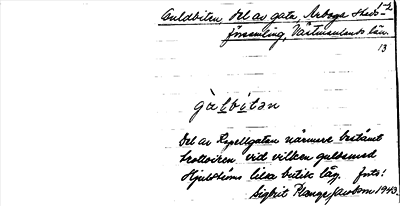 1-2
Guldbiten, del av gata, Arboga stads-
församling, Västmanlands län.
13
gàlbitən
Del av Repellgatan närmare bestämt
trottoiren vid vilken guldsmed
Hjulströms lilla butik låg. forts!
Sigbrit Plænge Jacobson 1943.